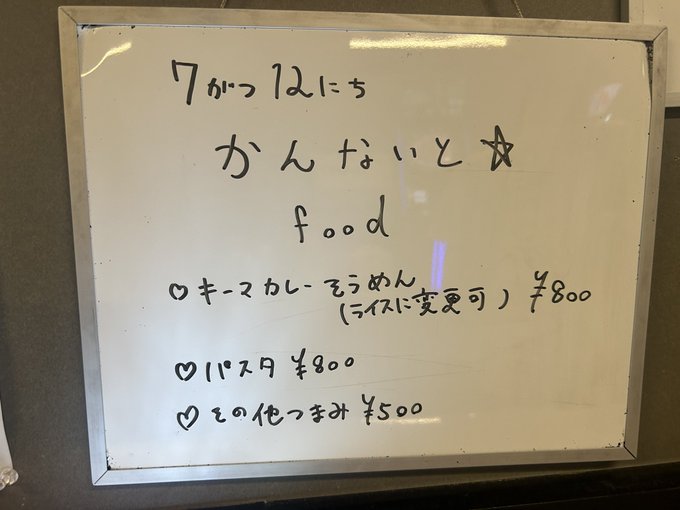 7がつ12にち
かんないと☆
food
♡キーマカレーそうめん
(ライスに変更可) ¥800
♡パスタ ¥800
♡その他つまみ ¥500